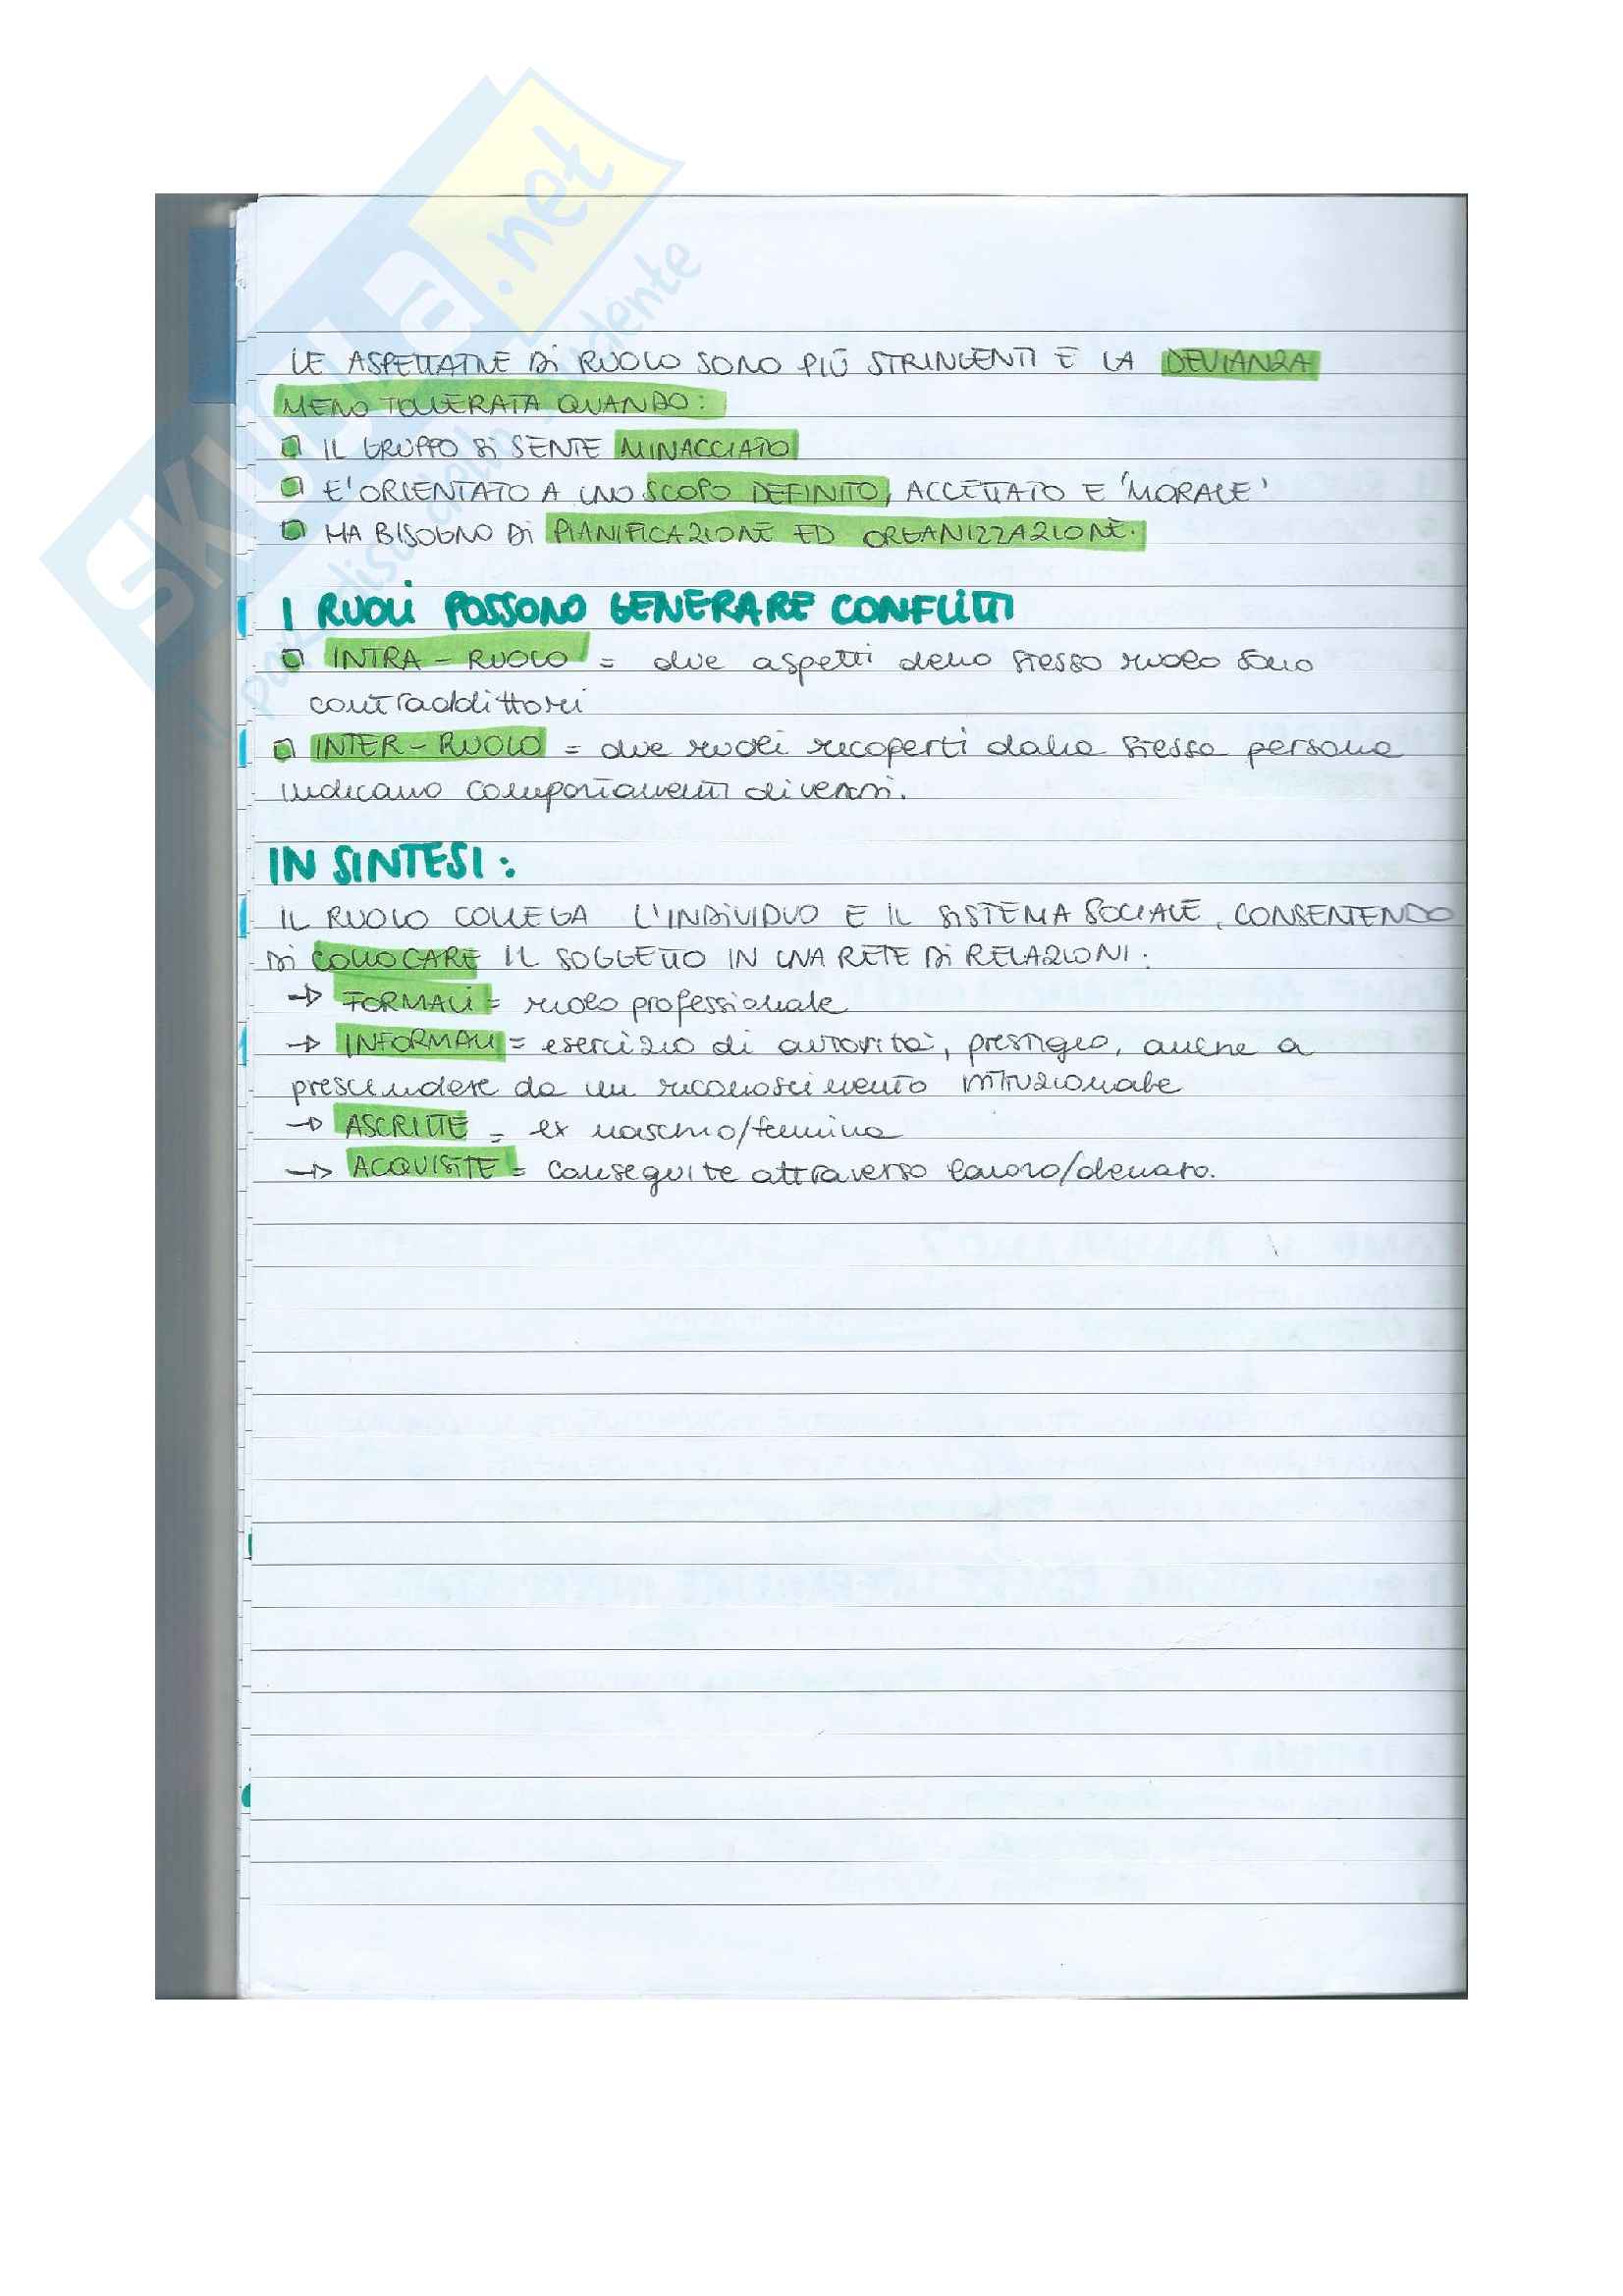 SKUOLA.net
il paradiso dello studente
LE ASPETTATIVE DI RUOLO SONO PIÙ STRINGENTI E LA DEVIANZA
MENO TOLLERATA QUANDO:
IL GRUPPO SI SENTE MINACCIATO
E' ORIENTATO A UNO SCOPO DEFINITO, ACCETTATO E 'MORALE'
HA BISOGNO DI PIANIFICAZIONE ED ORGANIZZAZIONE.
I RUOLI POSSONO GENERARE CONFLITTI
INTRA-RUOLO = due aspetti dello stesso ruolo sono
contraddittori
INTER-RUOLO = due ruoli ricoperti dalla stessa persona
indicano comportamenti diversi.
IN SINTESI:
IL RUOLO COLLEGA L'INDIVIDUO E IL SISTEMA SOCIALE, CONSENTENDO
DI COLLOCARE IL SOGGETTO IN UNA RETE DI RELAZIONI:
→ FORMALI = ruolo professionale
→ INFORMALI = esercizio di autorità, prestigio, anche a
prescindere da un riconoscimento istituzionale
→ ASCRITTE = ex maschio/femmina
→ ACQUISITE = conseguite attraverso lavoro/denaro.